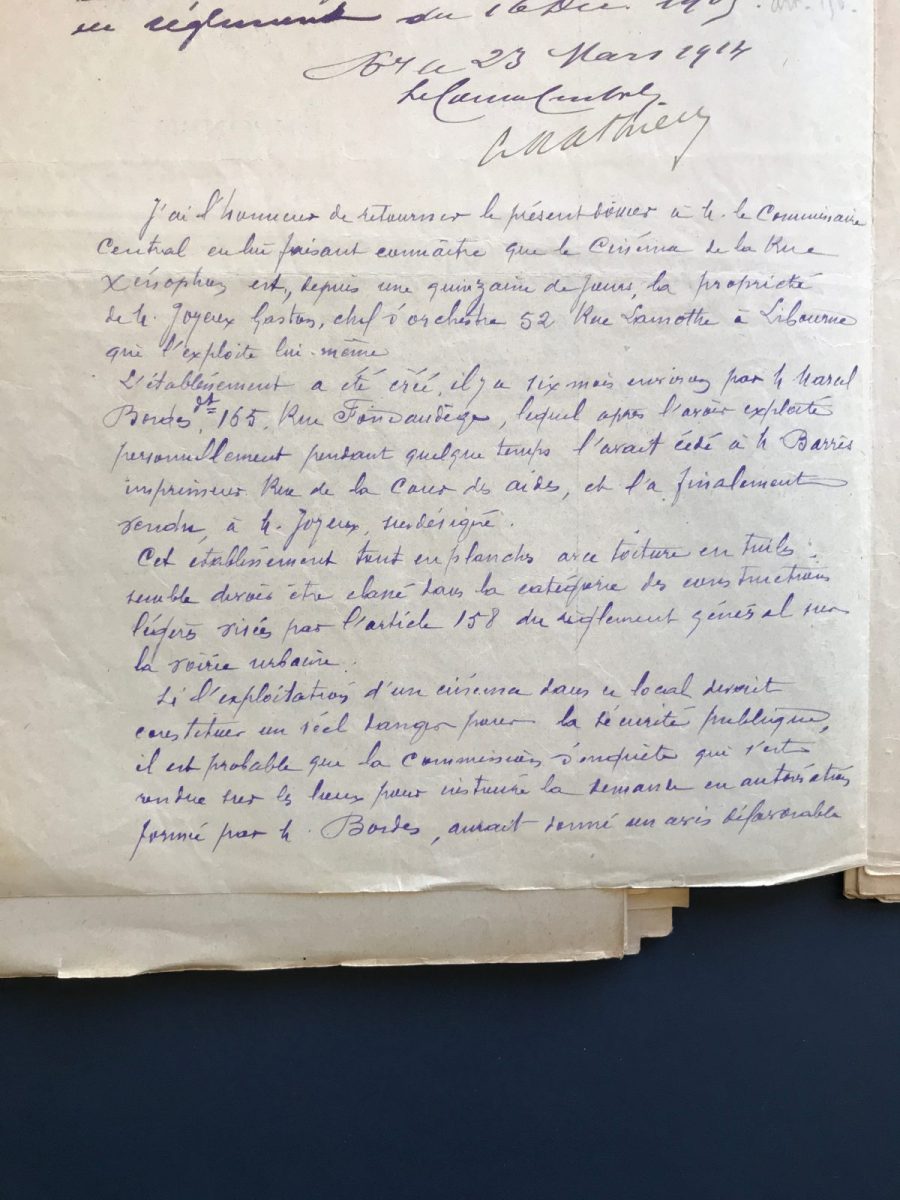 du règlement du 16 Déc. 1905.
23 Mars 1914
Le Comm. Central
Mathieu
J'ai l'honneur de retourner le présent dossier à M. le Commissaire
Central en lui faisant connaître que le Cinéma de la Rue
est, depuis une quinzaine de jours, la propriété
de M. Joyeux Gaston, chef d'orchestre 52 Rue Lamothe à Libourne
qui l'exploite lui-même
L'établissement a été créé, il y a six mois environ par M
Bordes, dt 165, Rue Fondaudège, lequel après l'avoir exploité
personnellement pendant quelque temps l'avait cédé à M Barrès
imprimeur Rue de la Cour des aides, et l'a finalement
vendu, à M. Joyeux, susdésigné.
Cet établissement tout en planches avec toiture en tuiles
semble devoir être classé dans la catégorie des constructions
légères visées par l'article 158 du règlement général sur
la voirie urbaine.
Si l'exploitation d'un cinéma dans ce local devait
constituer un réel danger pour la sécurité publique,
il est probable que la Commission d'enquête qui s'est
rendue sur les lieux pour instruire la demande en autorisation
formé par M. Bordes, aurait donné un avis défavorable